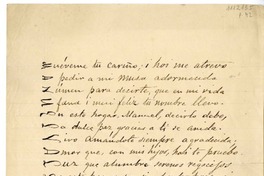 Muéveme tú cariño, i hoi me atrevo
pedir a mi Musa adormecida
Númen para decirte, que en mi vida
feliz tu nombre llevo.
En este hogar, Manuel, decirlo debo,
dulce paz gracias a ti se anida.
Vivo amándote siempre agradecida
Amor que, con mis hijos, hoi te pruebo
Luz que alumbre serenos regocijos